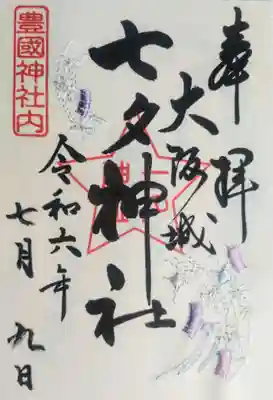 奉拝
大阪城
七夕神社
令和六年
七月九日
豊國神社内